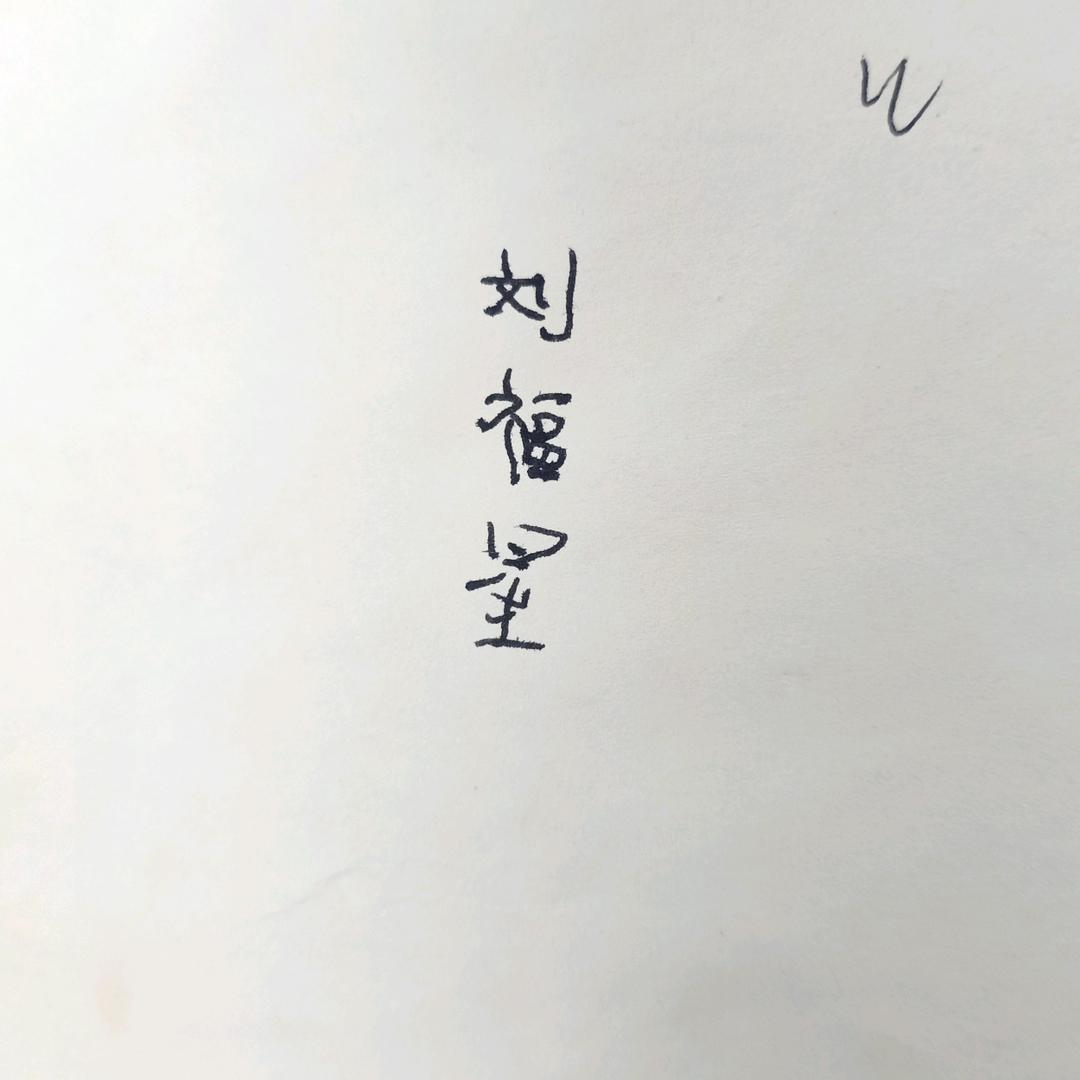 刘福星